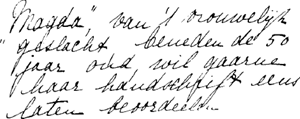 "Magda", van 't vrouwelijk
"geslacht, beneden de 50
jaar oud wil gaarne
haar handschrift eens
laten beoordeelen.